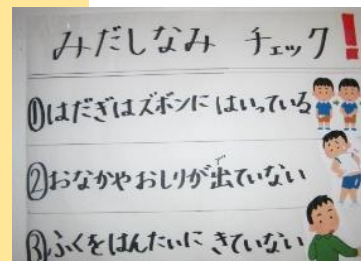 みだしなみ チェック!
①はだぎはズボンに はいっている
②おなかや おしりが出ていない
③ふくをはんたいに きていない